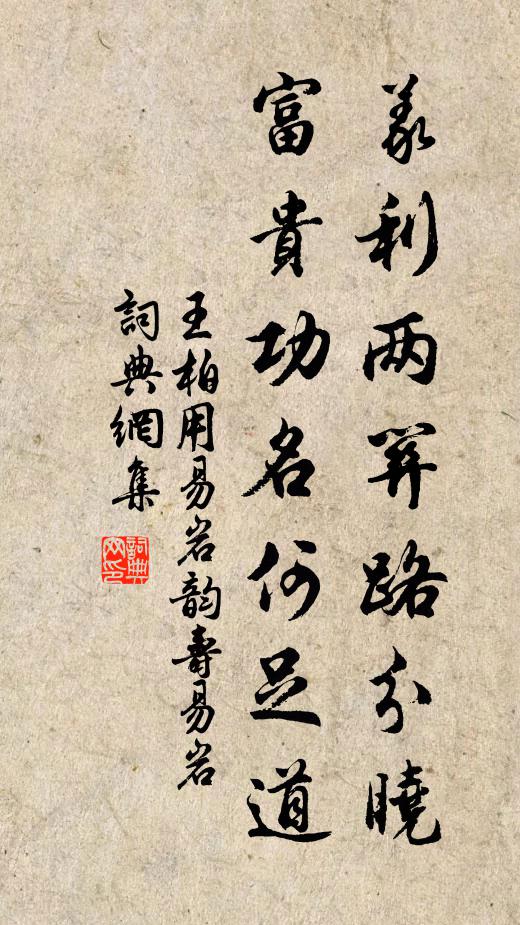 義利两關路分曉
富貴功名何足道
王柏用易岩韵壽易岩
詞典網集
詞典
网印